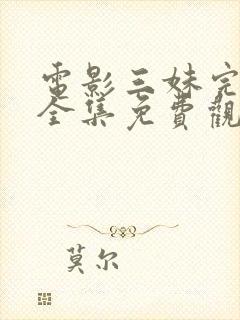 電影三妹完
全集免費觀
莫尔